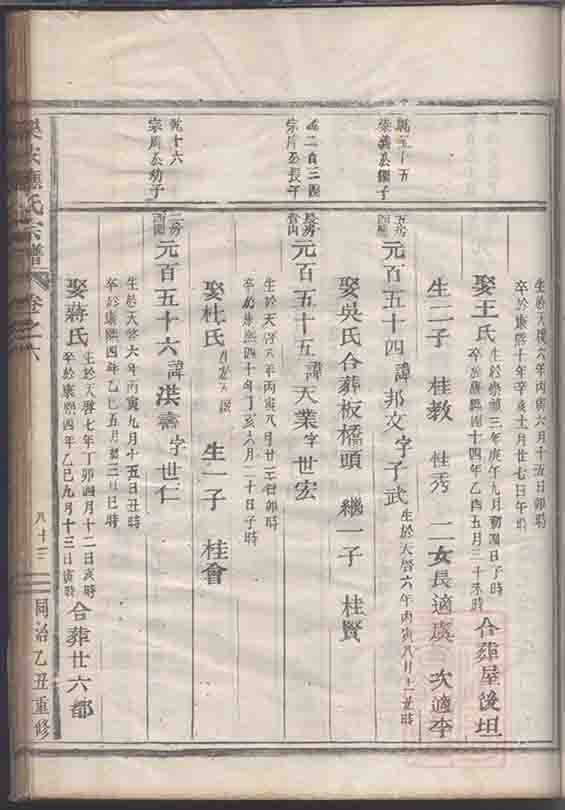 生於天啓六年丙寅六月十五日卯時
卒於康熙十年辛亥十一月廿七日午時
娶王氏
生於崇禎三年庚午九月初四日子時
卒於康熙四十四年乙酉五月三十未時
合葬屋後坦
生二子 桂教 桂秀 二女長適虞 次適李
崇義公繼子
元百五十四諱邦文字子武
生於天啓六年丙寅八月十二丑時
娶吳氏合葬板橋頭 繼一子 桂賢
宗周公長子
元百五十五諱天業字世宏
生於天啓六年丙寅八月廿三日卯時
卒於康熙四十年丁亥六月二十日子時
娶杜氏
生一子 桂會
乾十六
宗周公幼子
二房
元百五十六諱洪壽字世仁
生於天啓六年丙寅九月十五日丑時
卒於康熙四年乙巳五月初三日巳時
娶蔣氏
生於天啓七年丁卯四月十二日亥時
卒於康熙四年乙巳九月十三日寅時
合葬廿六都
應氏宗譜
卷之六
八十三
同治乙丑重修